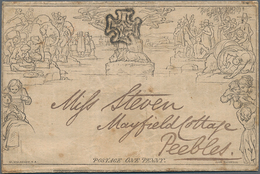 Miss Steven
Mayfield Cottage
Peebles.
POSTAGE ONE PENNY.